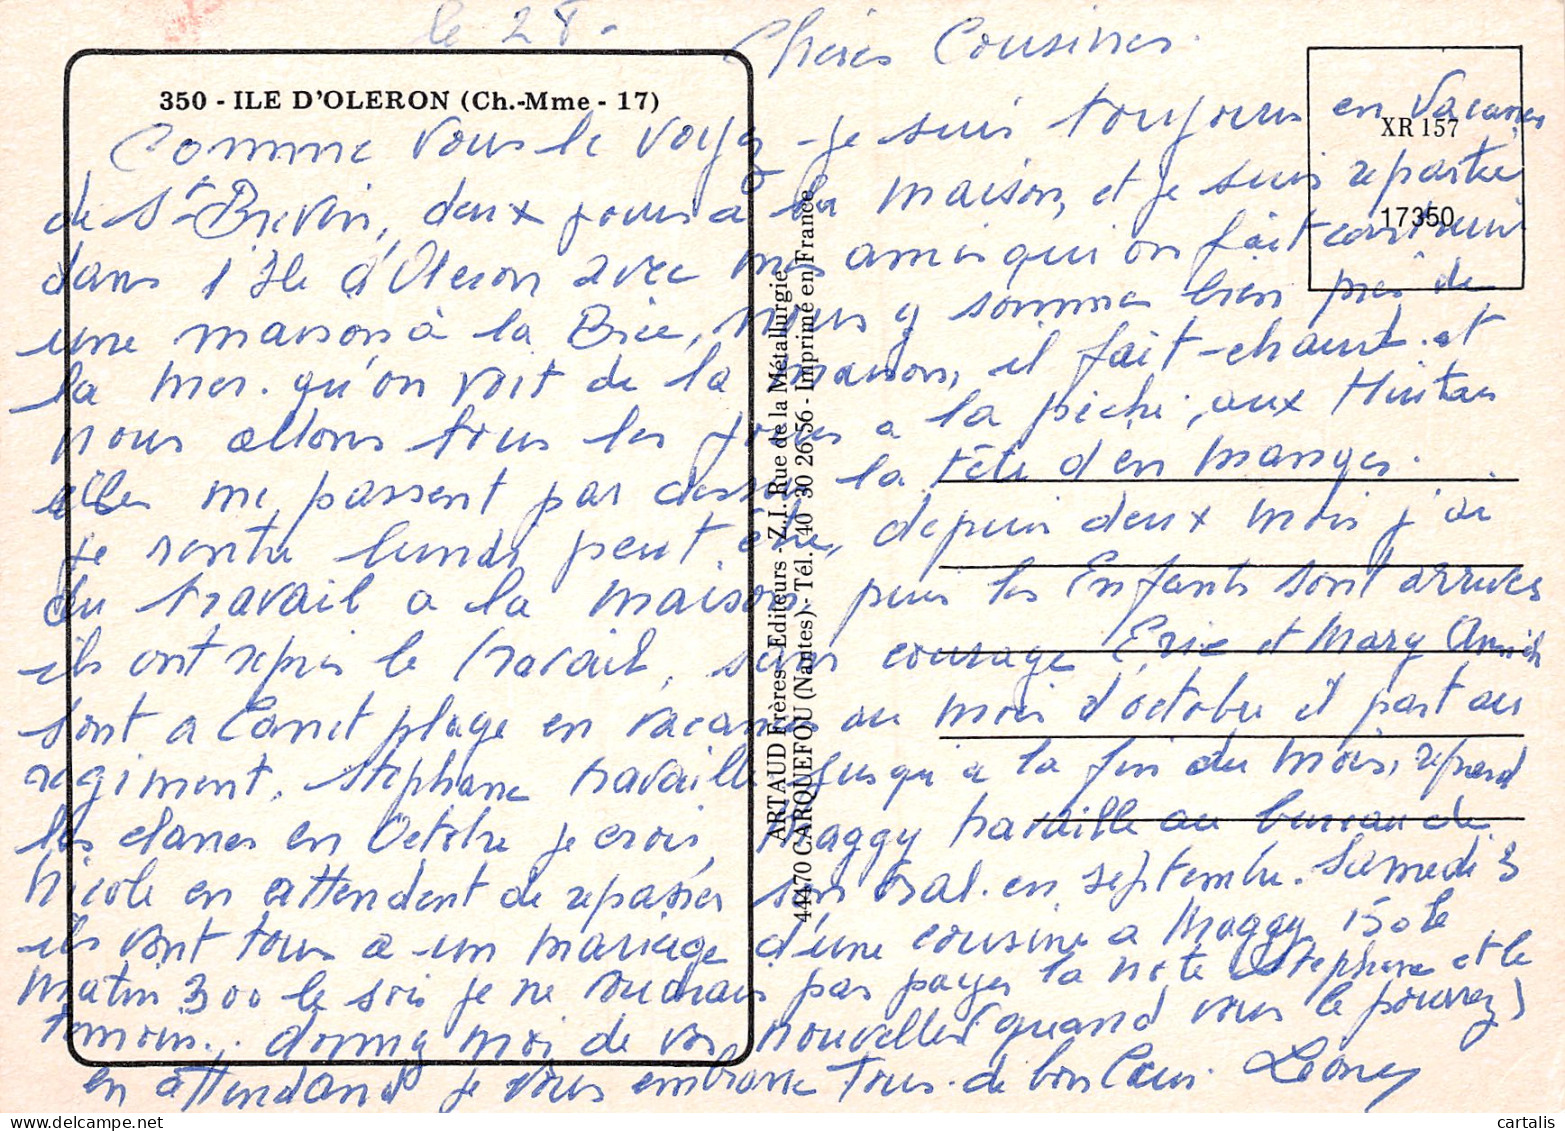 le 28 -
Chères Cousines.
350 - ILE D'OLERON (Ch.-Mme - 17)
XR 157
17350
Comme vous le voyez je suis toujours en vacances
de St Brevin, deux jours à la maison, et je suis repartie
dans l'Ile d'Oleron avec mes amis qui on fait construire
une maison à la Brée, nous y somme bien près de
la mer. qu'on voit de la maison, il fait chaud. et
nous allons tous les jours a la pèche, aux Huitres
elles me passent par dessus la tête d'en manger.
je rentre lundi peut être, depuis deux mois j'ai
du travail a la maison, puis les Enfants sont arrives
ils ont repris le travail, sans courage Eric et Mary Annick
sont a Canet plage en vacances au mois d'octobre il part au
regiment. Stephane travaille jusqu'a la fin du mois, reprend
les classes en Octobre je crois, Maggy travaille au bureau de
Nicole en attendent de repasser son oral. en septembre. Samedi 3
ils vont tous a un mariage d'une cousine a Maggy 150 le
matin 300 le soir je ne voudrais pas payer la note Stephane et le
temoin.. donney moi de vos nouvelles (quand vous le pourrez)
en attendand je vous embrasse Tous. de bon Cœur. Léone
ARTAUD Frères Editeurs - Z.I. Rue de la Métallurgie
44470 CARQUEFOU (Nantes) - Tél. 40 30 26 56 - Imprimé en France
cartalis